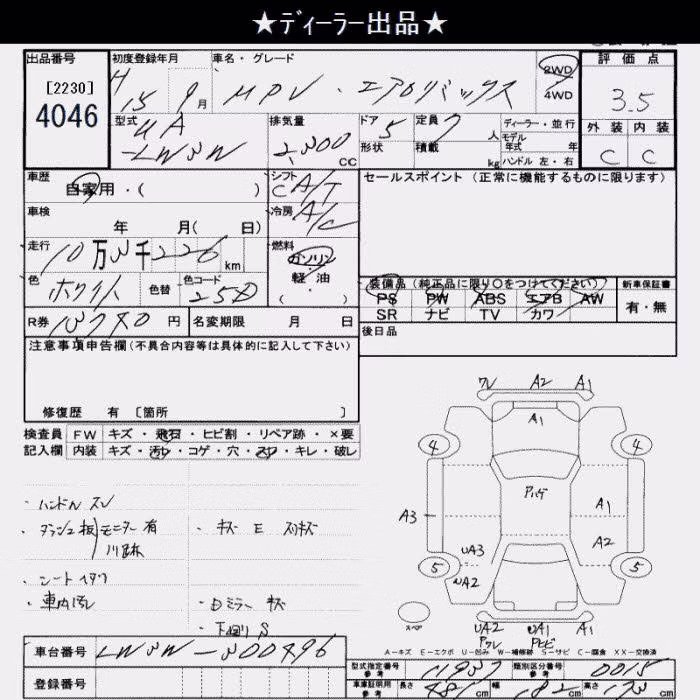 ★ディーラー出品★
出品番号 初度登録年月 車名・グレード 2WD 評価点
[2230] H 15 9月 MPV・エアロリミックス 4WD 3.5
4046 型式 排気量 ドア 定員 ディーラー・並行 外装 内装
UA 2,300 5 7人 モデル 年式 年 C C
-LW3W CC 形状 積載 kg ハンドル 左・右
車歴 シフト セールスポイント(正常に機能するものに限ります)
自家用・( ) C A/T
車検 冷房 A/C
年 月( 日)
走行 燃料
10万3千226km ガソリン
色 色替 色コード 軽・油 装備品(純正品に限り○をつけてください) 新車保証書
ホワイト 25D ( ) PS PW ABS エアB AW 有・無
SR ナビ TV カワ
R券 13740円 名変期限 月 日 後日品
注意事項申告欄(不具合内容等は具体的に記入して下さい)
修復歴 有 [箇所 ]
検査員 FW キズ・飛石・ヒビ割・リペア跡・×要
記入欄 内装 キズ・汚レ・コゲ・穴・スレ・キレ・破レ
ワレ A2 A1
A1
4 4
アルゲ
A3 A1
A2
UA3
5 5
UA2
・ハンドル スレ
・ダッシュ板モニター有
・キズ E スリキズ
・シート
・車内汚レ
・Dミラー キズ
・下廻り S
スペア
UA2 UA1 A1
A-キズ E-エクボ U-凹み W-補修跡 S-サビ C-腐食 XX-交換済
車台番号 LW3W-300496
型式指定番号 参考 11937 類別区分番号 参考 0015
登録番号 車庫証明用 参考 長さ 481cm 幅 182cm 高さ 173cm